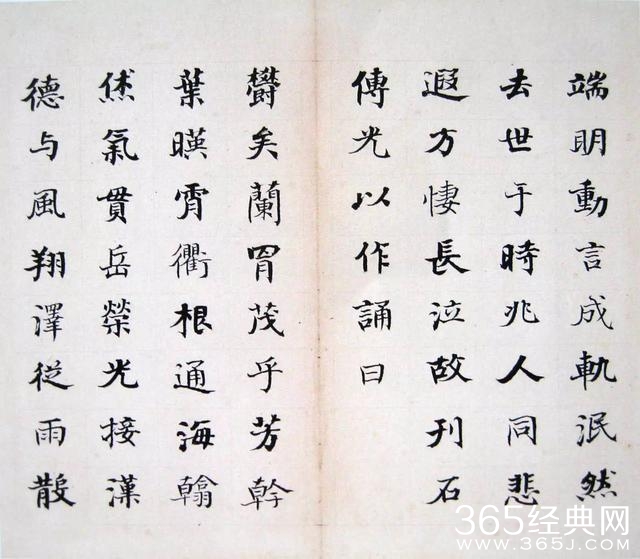 端明動言成軌泯然
去世于時兆人同悲
遐方悽長泣故刊石
傳光以作誦曰
欝矣蘭冑茂乎芳幹
葉暎霄衢根通海翰
烋氣貫岳榮光接漢
德与風翔澤從雨散
365经典网
WWW.365J.COM